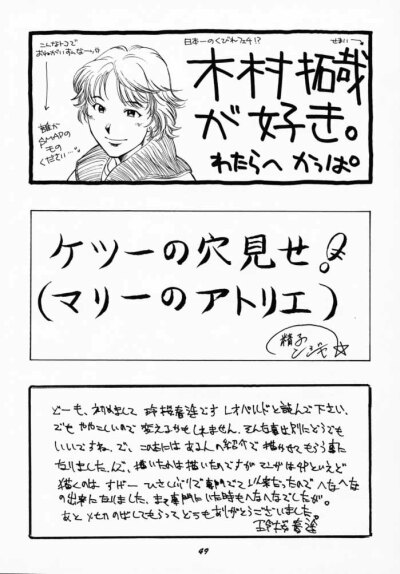 こんなトコで
日本一のくびわフェチ!?
せまい
木村拓哉
が好き。
わたらへ かっぱ。
誰か
SMAPの
もの
ください…
ケツーの穴見せ!
(マリーのアトリエ)
どーも、初めまして 珎桜春途です レオパルドと読んで下さい。
でも ややこしいので 変えるかもしれません。そんな事は別にどうでも
いいですね。で、このたびは ある人の紹介で 描かせてもらう事に
なりました。んで、描いたのは描いたのですが マンガは4Pといえど
描くのは すげー ひさしぶりで専門でて以来だったので へなへな
の出来になりました。まぁ専門にいた時も へなへなでしたが。
あと メカの出してもらって どうもありがとうございました。
49